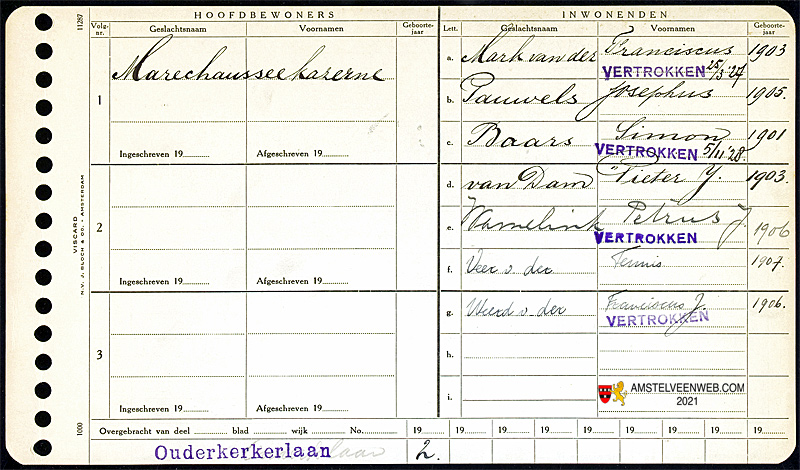 HOOFDBEWONERS
INWONENDEN
Volg-nr. Geslachtsnaam Voornamen Geboorte-jaar Lett. Geslachtsnaam Voornamen Geboorte-jaar
11287
1 Marechausseekazerne
Ingeschreven 19 Afgeschreven 19
a. Mark van der Franciscus 1903
VERTROKKEN 25/3 '27
b. Pauwels Josephus 1905.
c. Baars Simon 1901
VERTROKKEN 5/11 '28.
2
Ingeschreven 19 Afgeschreven 19
d. van Dam Pieter J. 1903.
e. Wamelink Petrus J. 1906
VERTROKKEN
f. Veer v. der Teunis 1907.
3
Ingeschreven 19 Afgeschreven 19
g. Weerd v. der Franciscus J. 1906.
VERTROKKEN
h.
i.
AMSTELVEENWEB.COM
2021
VISCARD
N.V. J. BLOCH & CO. - AMSTERDAM
1000
Overgebracht van deel blad wijk No. 19 19 19 19 19 19 19 19 19
Ouderkerkerlaan 2.